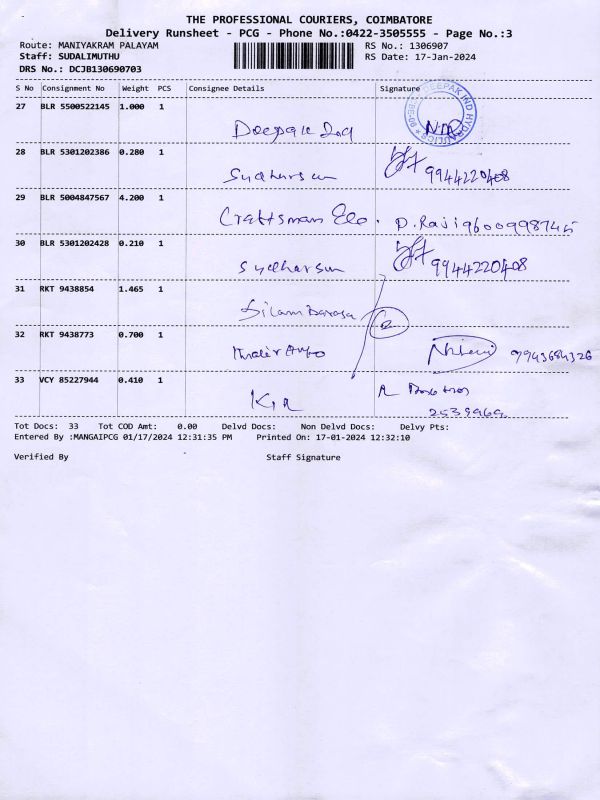 THE PROFESSIONAL COURIERS, COIMBATORE
Delivery Runsheet - PCG - Phone No.:0422-3505555 - Page No.:3
Route: MANIYAKRAM PALAYAM RS No.: 1306907
Staff: SUDALIMUTHU RS Date: 17-Jan-2024
DRS No.: DCJB130690703
S No Consignment No Weight PCS Consignee Details Signature
27 BLR 5500522145 1.000 1
DEEPAK IND HYDRAULICS
Deepak Ind
28 BLR 5301202386 0.280 1
Sudharsun 9944220408
29 BLR 5004847567 4.200 1
Craftsman Ele. D.Raji 9600998745
30 BLR 5301202428 0.210 1
Sudharsun 9944220408
31 RKT 9438854 1.465 1
Silambarasa
32 RKT 9438773 0.700 1
9943684326
33 VCY 85227944 0.410 1
2539969
Tot Docs: 33 Tot COD Amt: 0.00 Delvd Docs: Non Delvd Docs: Delvy Pts:
Entered By :MANGAIPCG 01/17/2024 12:31:35 PM Printed On: 17-01-2024 12:32:10
Verified By Staff Signature